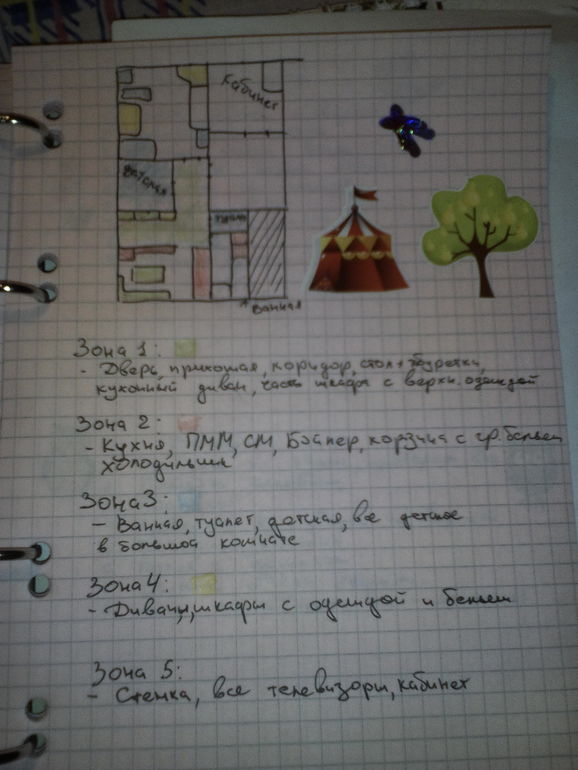 Кабинет
детская
туалет
Ванная
Зона 1:
- Дверь, прихожая, коридор, стол + табуретки,
кухонный диван, часть шкафа с верхн. одеждой
Зона 2:
- Кухня, ПММ, СМ, Бойлер, корзина с гр. бельем
холодильник
Зона 3:
- Ванная, туалет, детская, все детское
в большой комнате
Зона 4:
- Диваны, шкафы с одеждой и бельем
Зона 5:
- Стенка, все телевизоры, кабинет